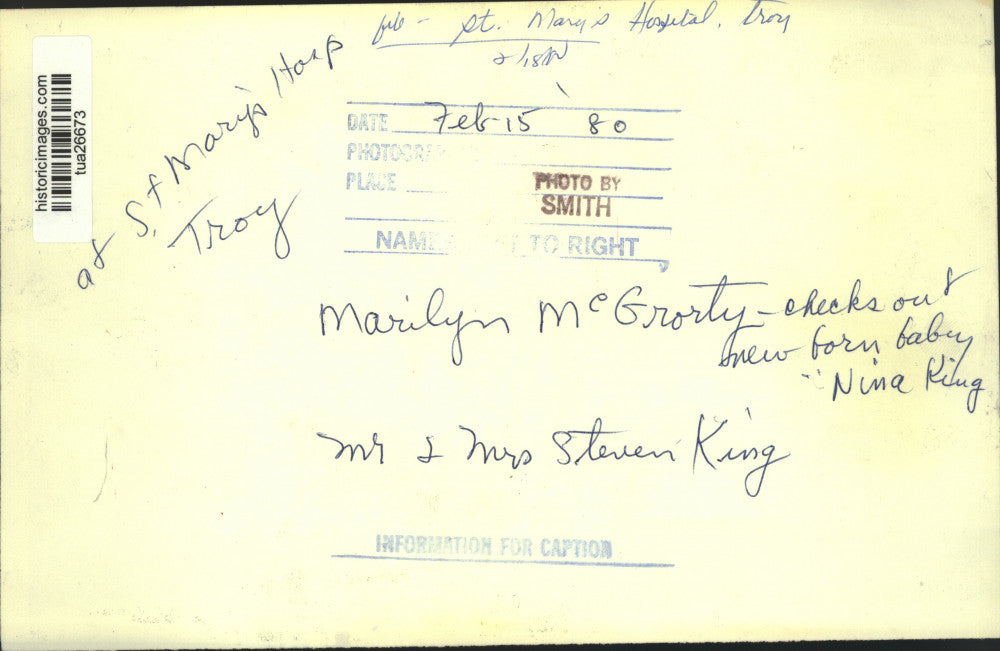 file - St. Mary's Hospital, Troy
2/18
at St Mary's Hosp
Troy
historicimages.com
tua26673
DATE Feb 15 80
PHOTOGRA
PLACE
PHOTO BY
SMITH
NAME TO RIGHT
Marilyn McGrorty - checks out
new born baby
Nina King
Mr & Mrs Steven King
INFORMATION FOR CAPTION